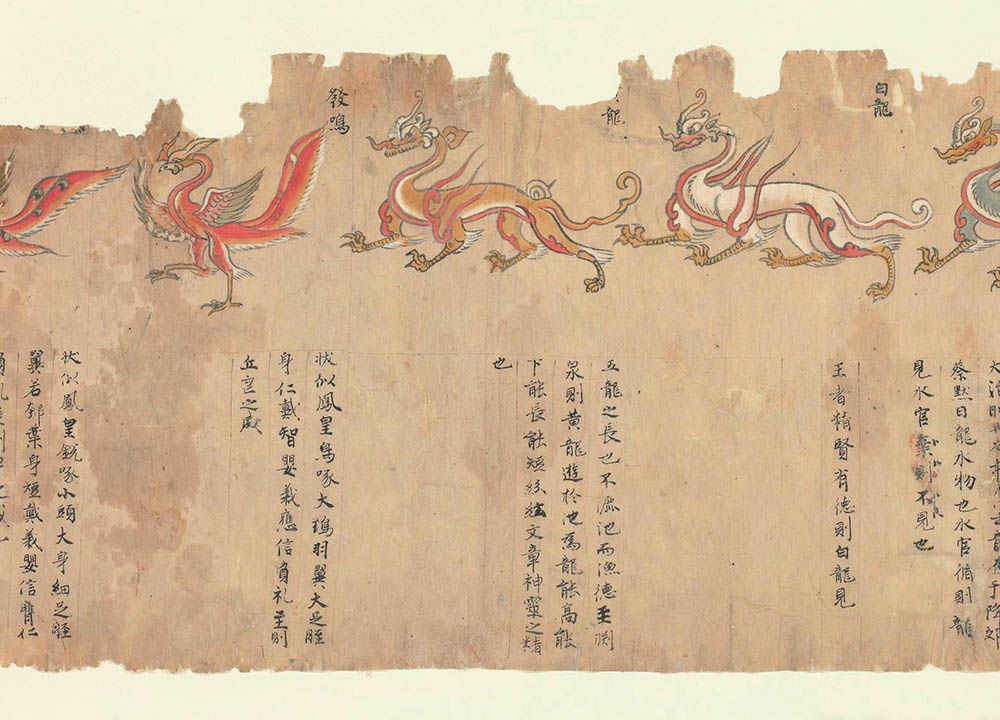 蔡默曰龍水物也水官循則龍
見水官棄則不見也
白龍
王者精賢有德則白龍見
龍
五龍之長也不漉池而漁德至渕
泉則黃龍遊於池為龍能高能
下能長能短文章神靈之精
也
發鳴
狀似鳳皇鳥喙大鶉羽翼大足脛
身仁戴智嬰義應信負礼至則
之感
狀似鳳皇銳喙小頭大身細足脛
翼若葉身短戴義嬰信膺仁